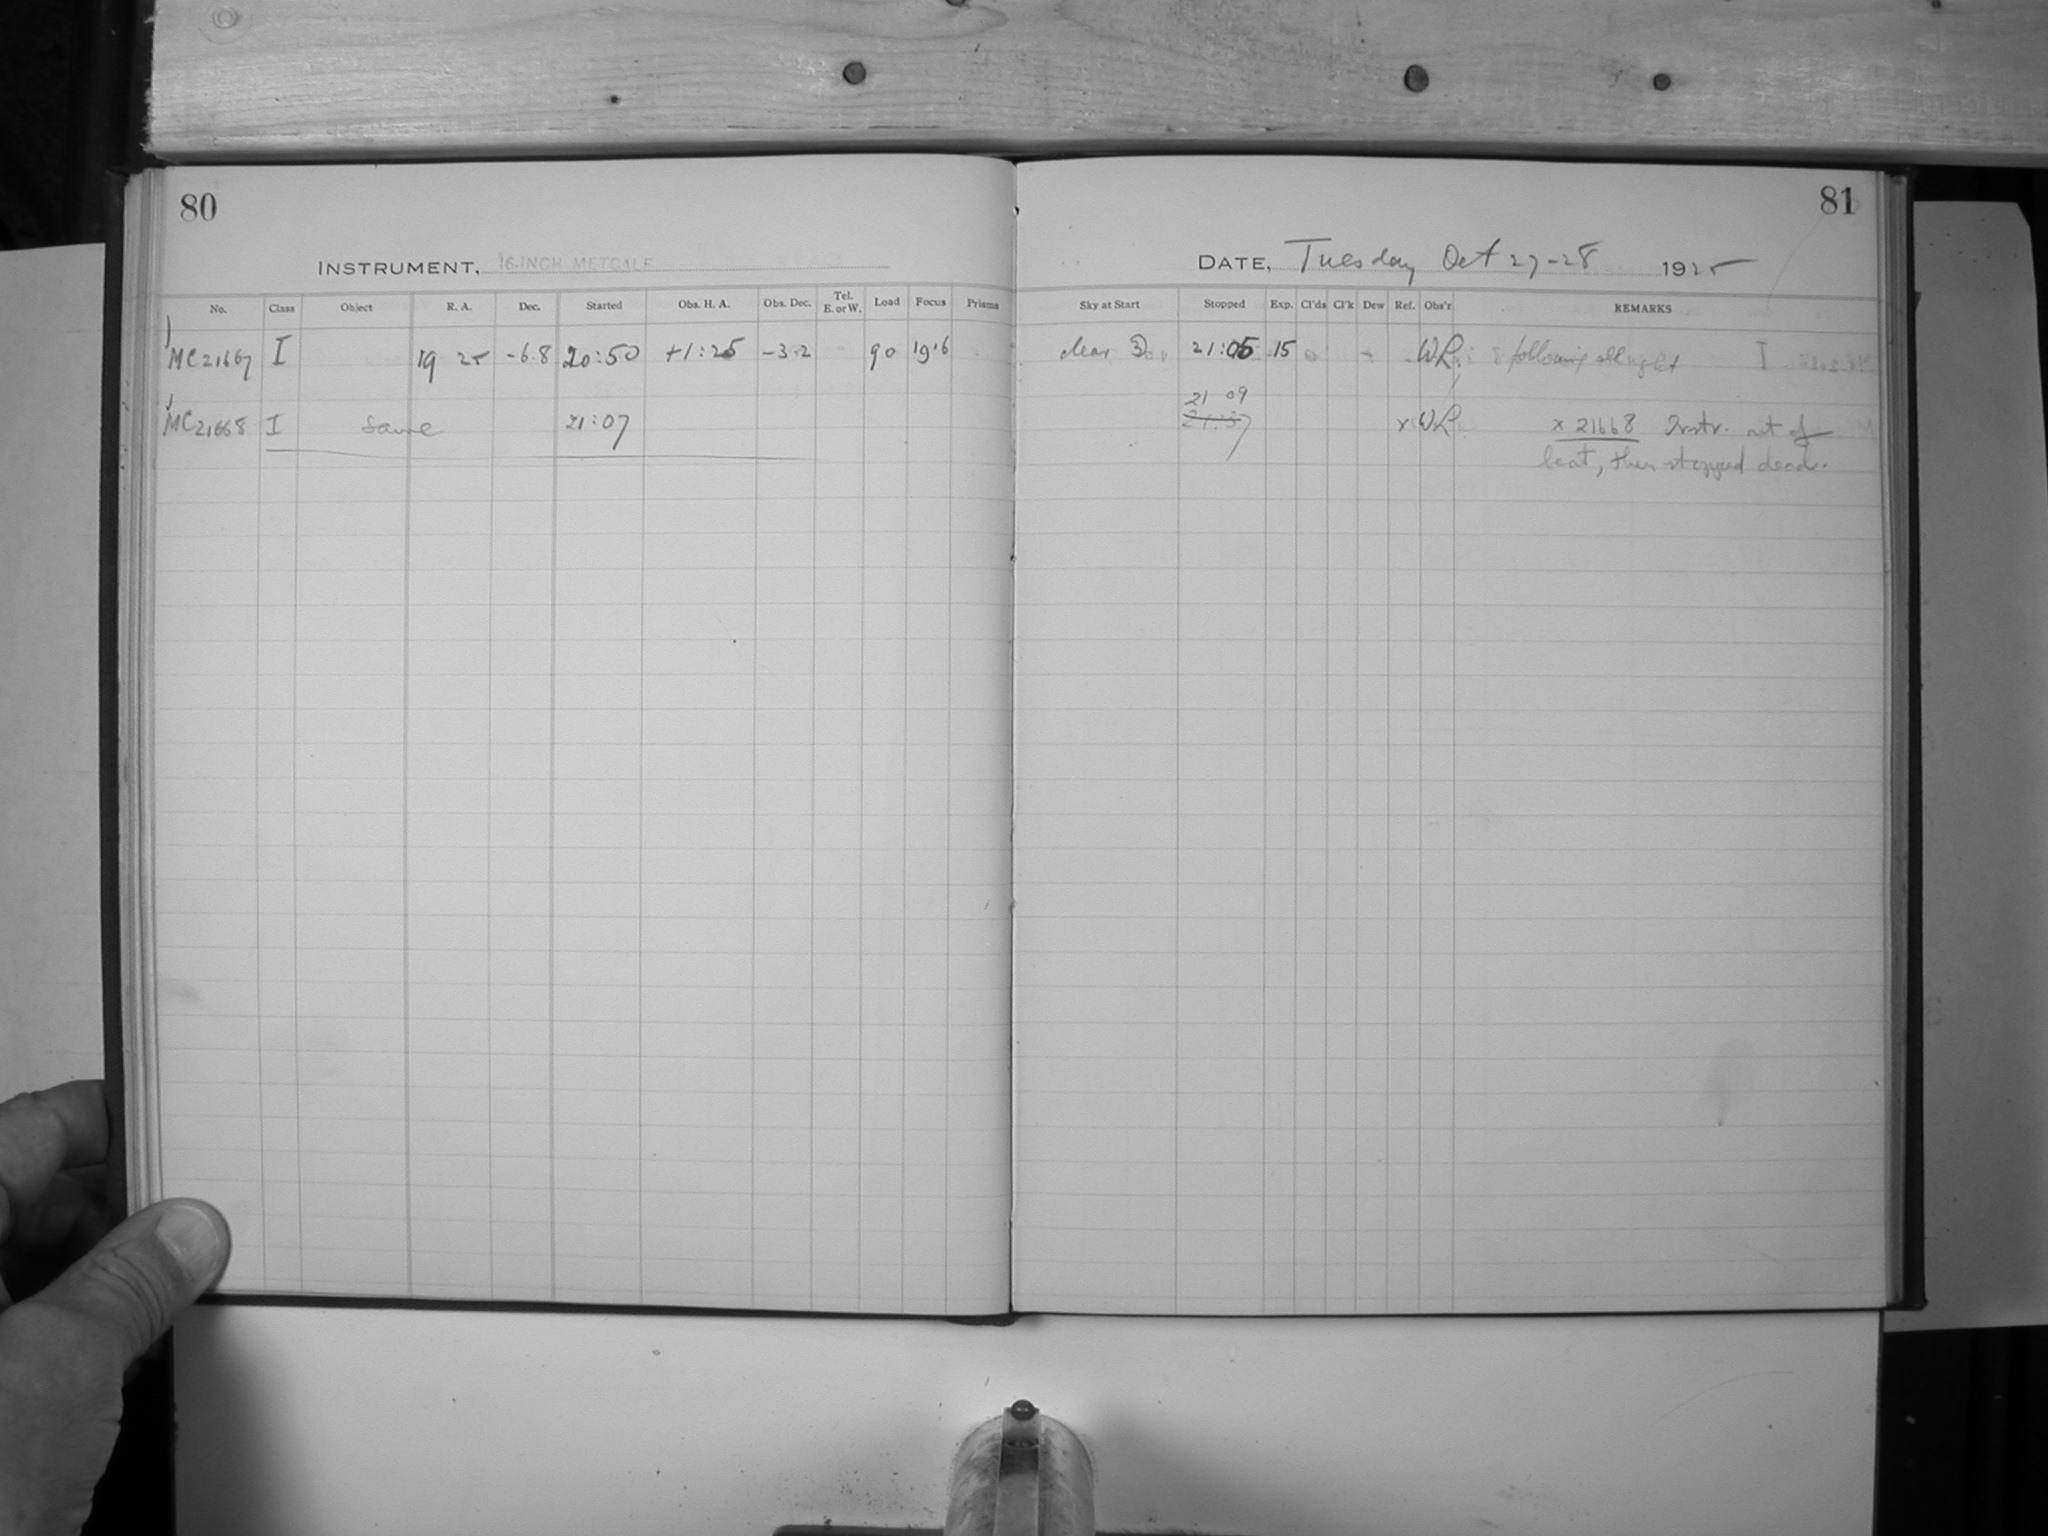 80
INSTRUMENT, 16-INCH METCALF
No. Class Object R. A. Dec. Started Obs. H. A. Obs. Dec. Tel. E. or W. Load Focus Prisms
MC21667 I 19 25 -6.8 20:50 +1:25 -3.2 90 19.6
MC21668 I Same 21:07
81
DATE, Tuesday Oct 27-28 1925
Sky at Start Stopped Exp. Cl'ds Cl'k Dew Ref. Obs'r REMARKS
clear 21:05 15 WL. following all right
21 09
21:37 x WL. x 21668 Instr. out of
beat, then stopped dead.